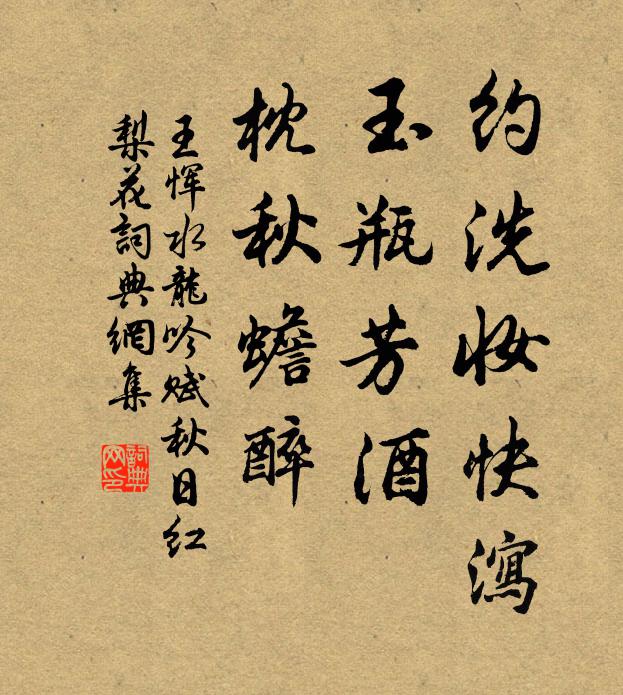 约洗妆快瀉
玉瓶芳酒
枕秋蟾醉
王恽水龍吟赋秋日红
梨花詞典網集
詞典网印